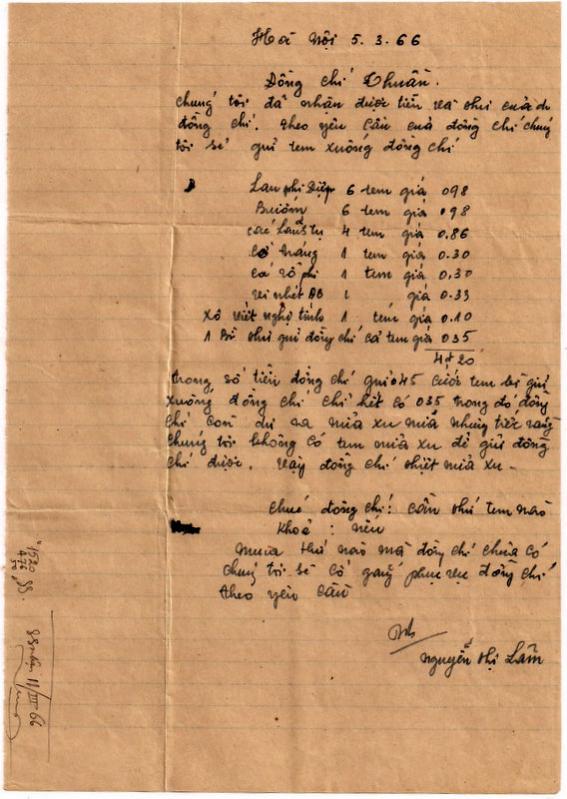 Hà Nội 5.3.66
Đồng chí Thuần.
chúng tôi đã nhận được tiền và thư của
đồng chí. Theo yêu cầu của đồng chí chúng
tôi sẽ gửi tem xuống đồng chí
Lan phi Điệp 6 tem giá 098
Bướm 6 tem giá 098
các Lãnh tụ 4 tem giá 0.86
1 tem giá 0.30
cá rô phi 1 tem giá 0.30
1 giá 0.33
Xô viết nghệ tĩnh 1 tem giá 0.10
1 Bì thư gửi đồng chí cả tem giá 035
4đ20
trong số tiền đồng chí gửi 045 cước tem bì gửi
xuống đồng chí chỉ hết có 035 trong đó đồng
chí còn dư ra nửa xu nhưng tiếc rằng
chúng tôi không có tem nửa xu để gửi đồng
chí được. Vậy đồng chí thiệt nửa xu -
chúc đồng chí: cần thứ tem nào
khoẻ: nếu
mua thứ nào mà đồng chí chưa có
chúng tôi sẽ cố gắng phục vụ đồng chí
theo yêu cầu
Nguyễn thị Lâm
11/III 66